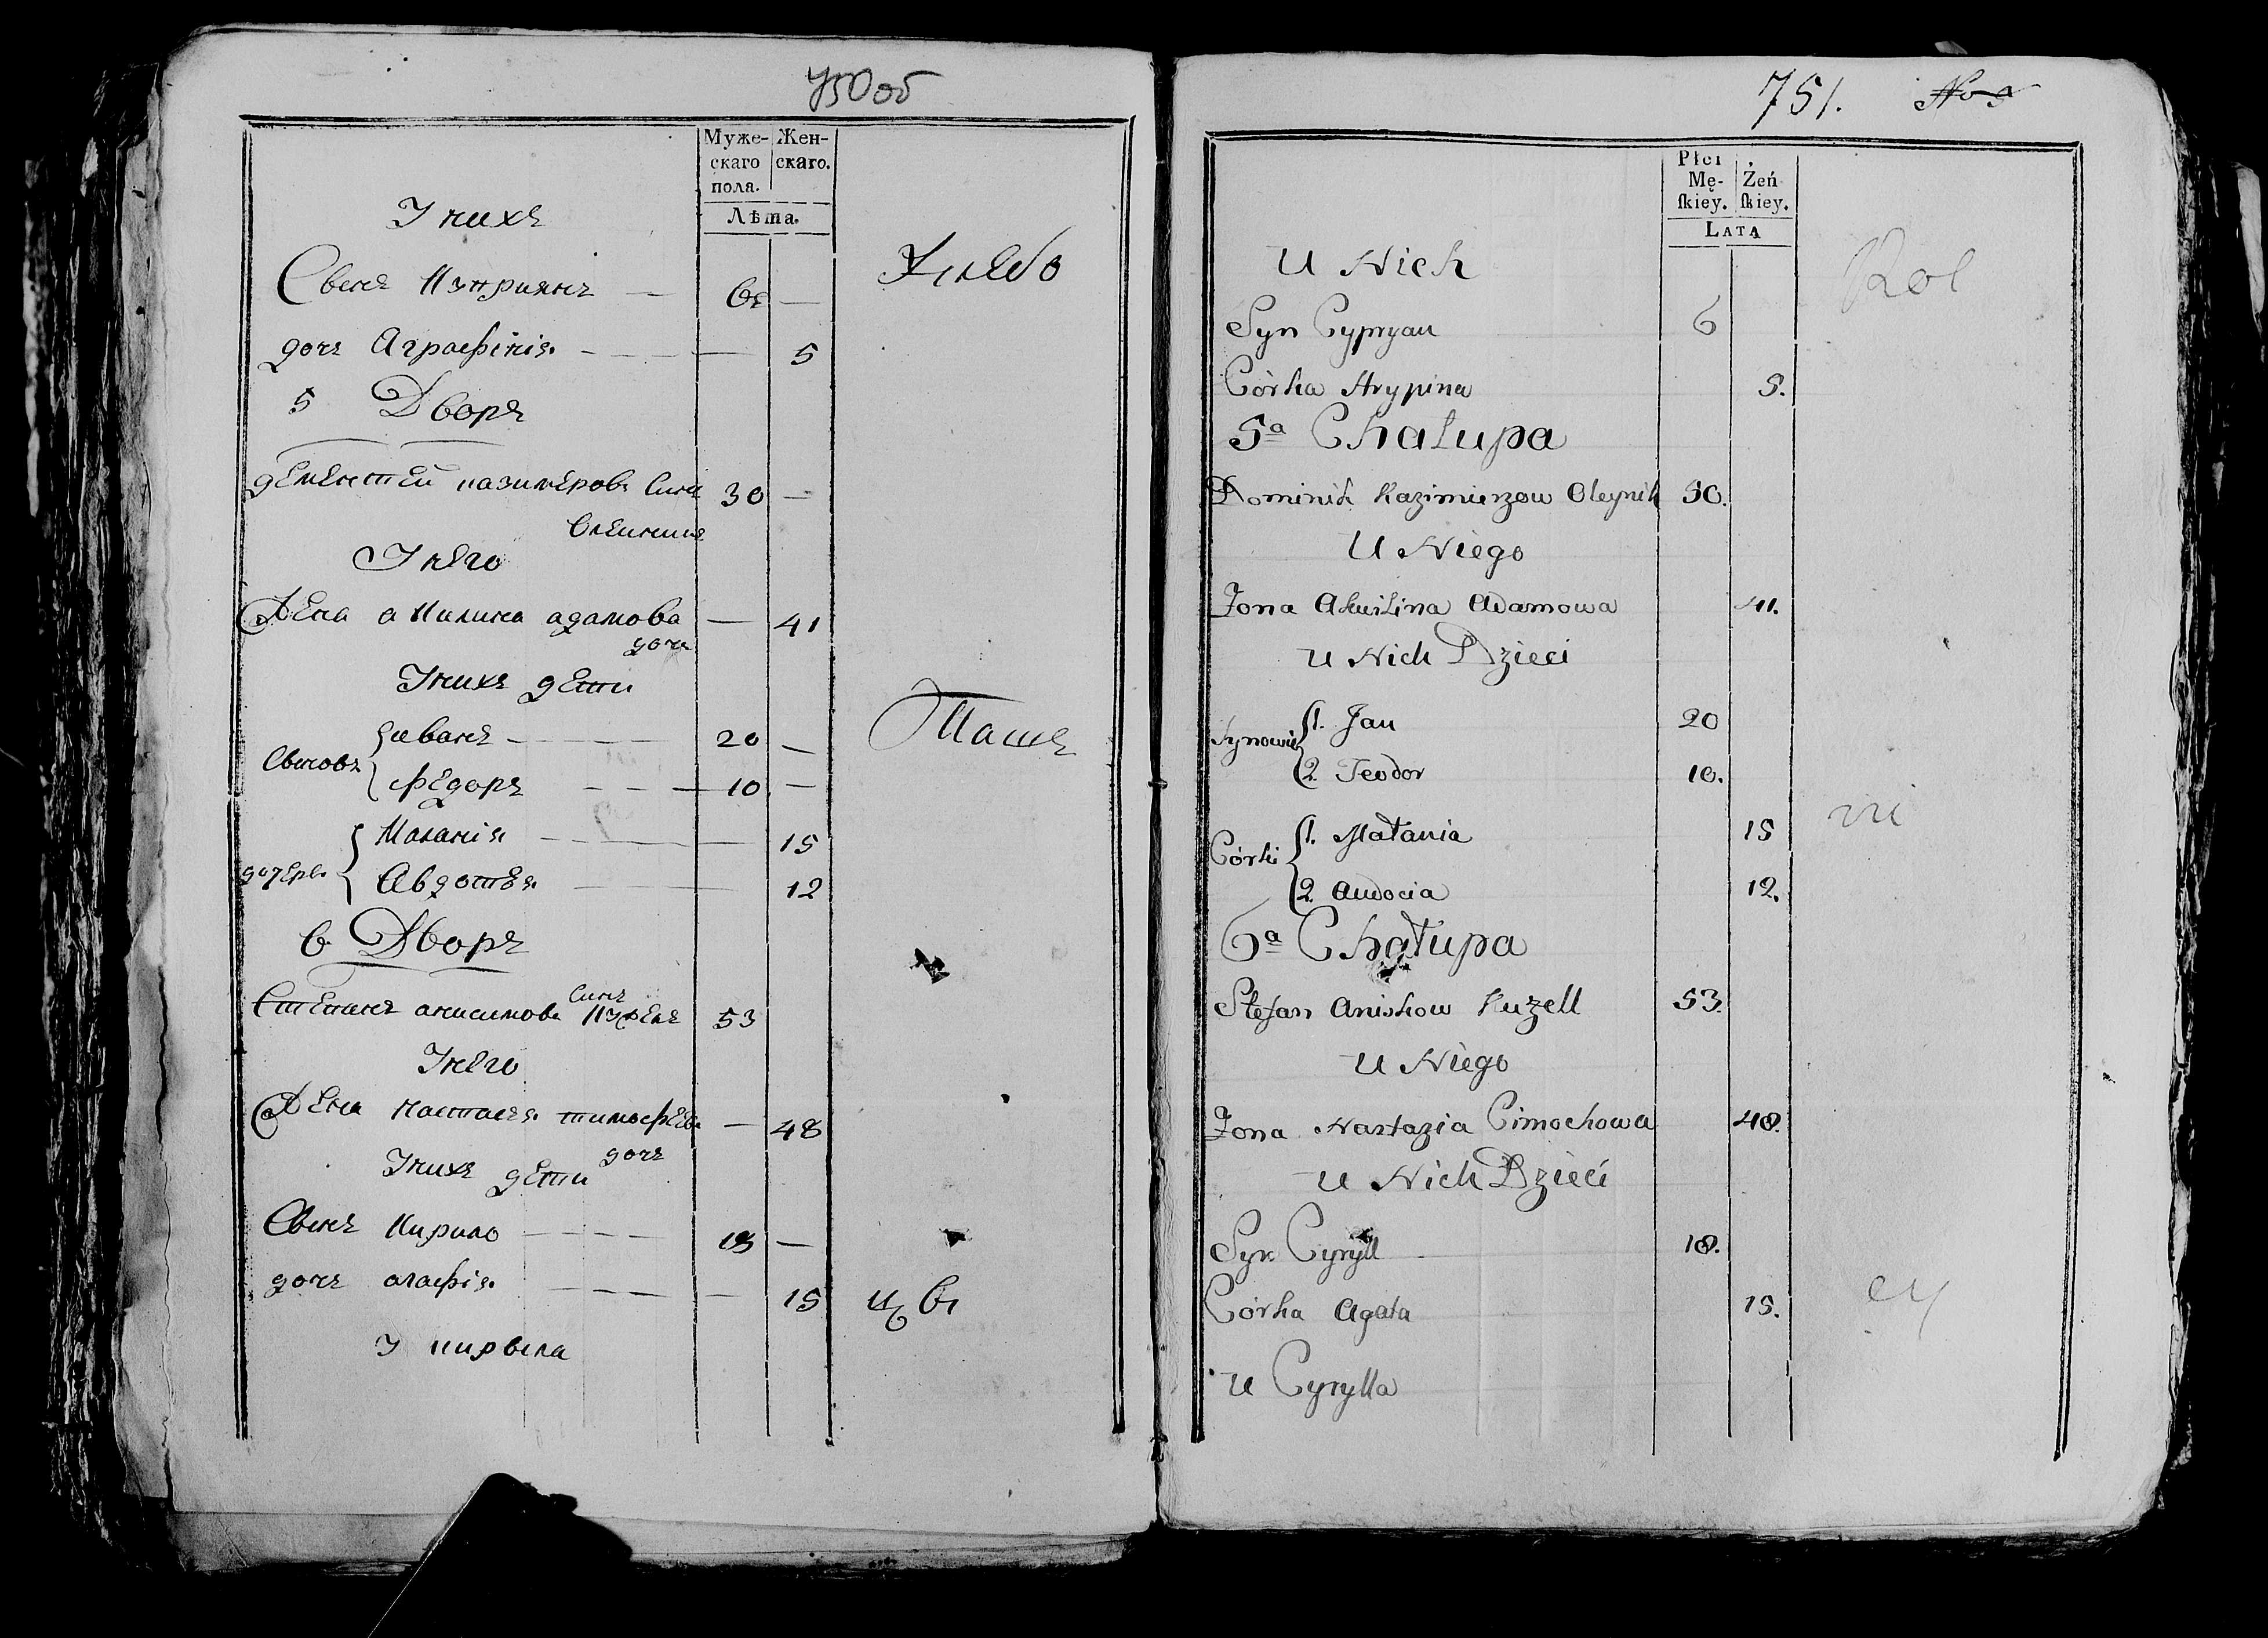 750 об
Муже-
скаго
пола.
Жен-
скаго.
Лѣта.
У нихъ
Сынъ Кипріянъ — 6 —
дочъ Аграфѣнія — 5
5 Дворъ
дементей казимеровъ Синъ 30 —
У него
Жена акилина адамова — 41
дочъ
У нихъ дети
Сыновъ иванъ — 20 —
федоръ — 10 —
дочерь Маланія — 15
Авдотья — 12
6 Дворъ
Синъ
Степанъ анисимовъ Кузель 53
У него
Жена настасья тимофеев — 48
дочъ
У нихъ дети
Сынъ Кирило — 18 —
дочъ агафія — 15
У кирыла
Хлебо
Паше
751. No
Płci
Mę-
skiey.
Żeń
skiey.
LATA
U Nich
Syn Cypryan 6
Córka Arypina 5.
5a Chałupa
Dominik Kazimierzow Oleynik 50.
U Niego
Żona Akwilina Adamowa 41.
U Nich Dzieci
Synowie 1. Jan 20
2. Teodor 10.
Córki 1. Małania 15
2. Audocia 12.
6a Chałupa
Stefan Aniskow Kuzell 53.
U Niego
Żona Nastazia Cimochowa 48.
U Nich Dzieci
Syn Cyryll 18.
Córka Agata 15.
U Cyrylla